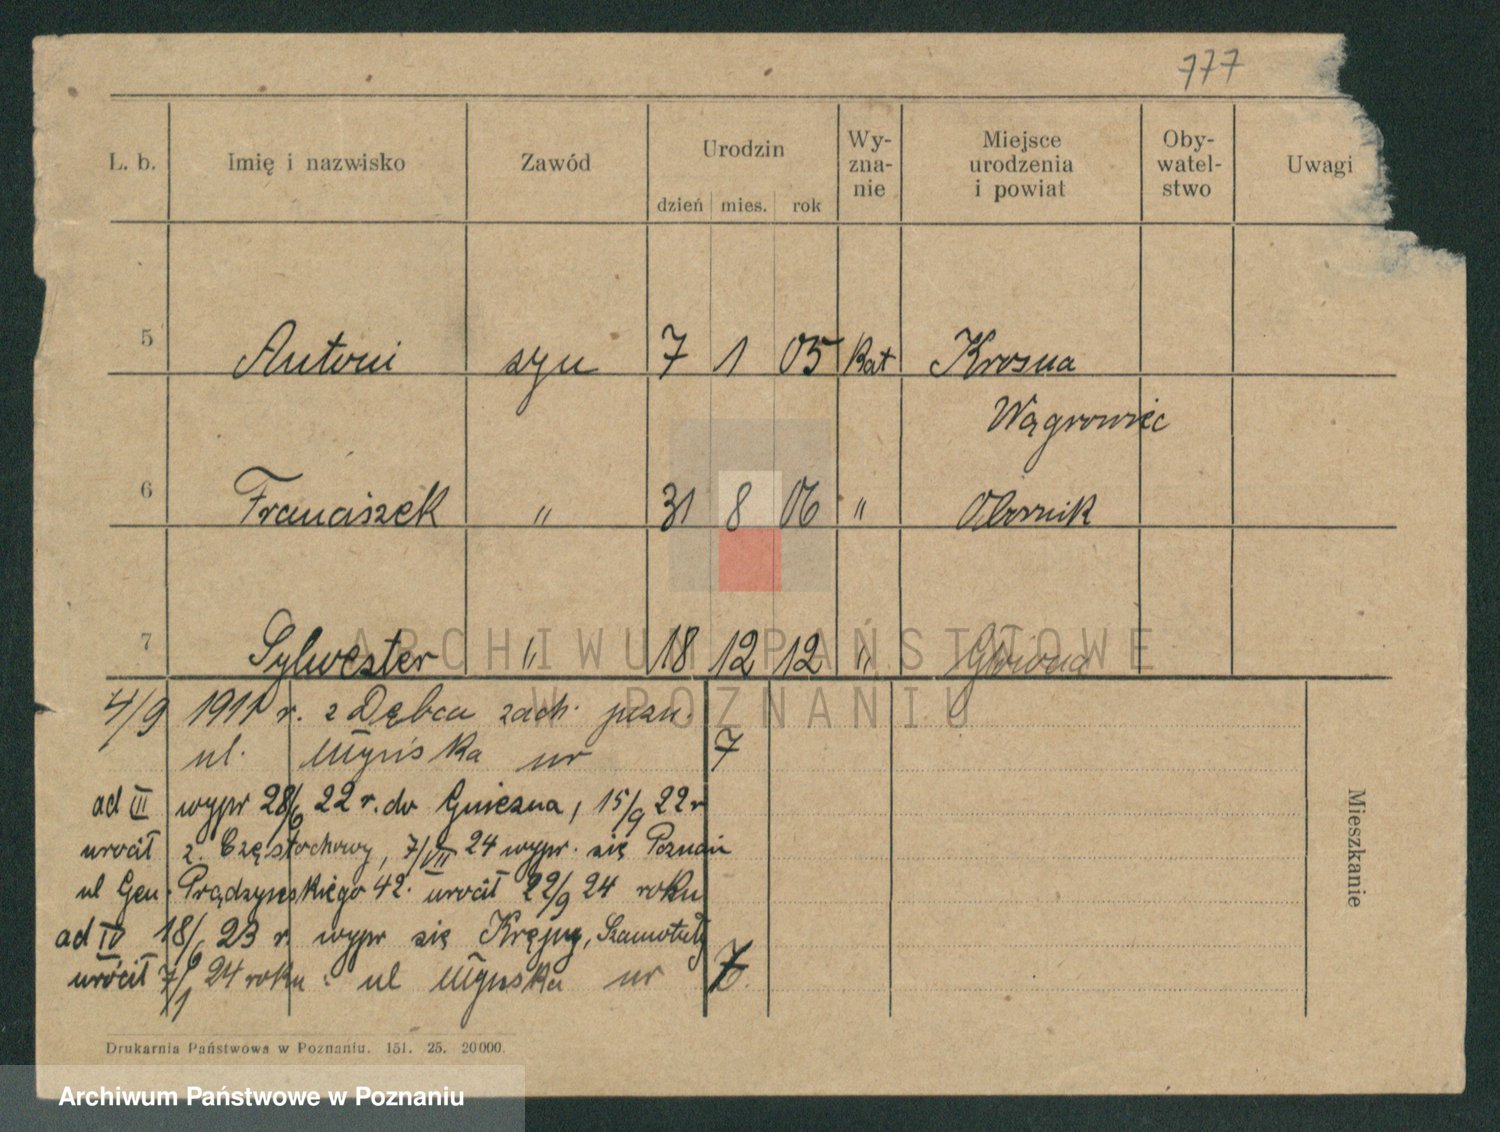 777
L. b. Imię i nazwisko Zawód Urodzin Wy- Miejsce Oby- Uwagi
zna- urodzenia watel-
nie i powiat stwo
dzień mies. rok
5 Antoni syn 7 1 05 Kat Krosna
Wągrowiec
6 Franciszek " 31 8 06 " Obornik
7 Sylwester " 18 12 12 " Główna
ARCHIWUM PAŃSTWOWE
W POZNANIU
4/9 1911 r. z Dębca zach. pozn.
ul. Młyńska nr 7
ad III wypr 28/6 22 r. do Gniezna, 15/9 22 r
wrócił z Częstochowy, 7/VII 24 wypr. się Poznań
ul Gen. Prądzyńskiego 42. wrócił 22/9 24 roku
ad IV 18/6 23 r wypr się Szamotuły
wrócił 7/1 24 roku ul Młyńska nr 7.
Mieszkanie
Drukarnia Państwowa w Poznaniu. 151. 25. 20000.
Archiwum Państwowe w Poznaniu